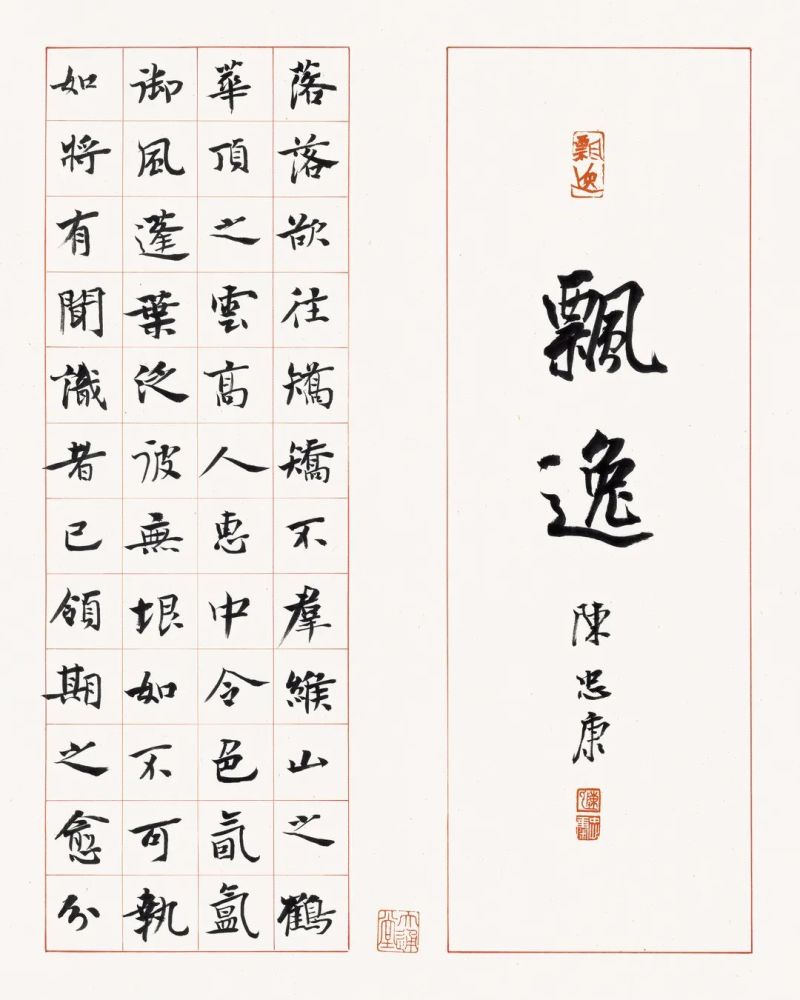 飄逸
飄逸
陳忠康
落落欲往矯矯不羣緱山之鶴
華頂之雲高人恵中令色氤氳
御風蓬葉泛彼無垠如不可執
如將有聞識者已領期之愈分